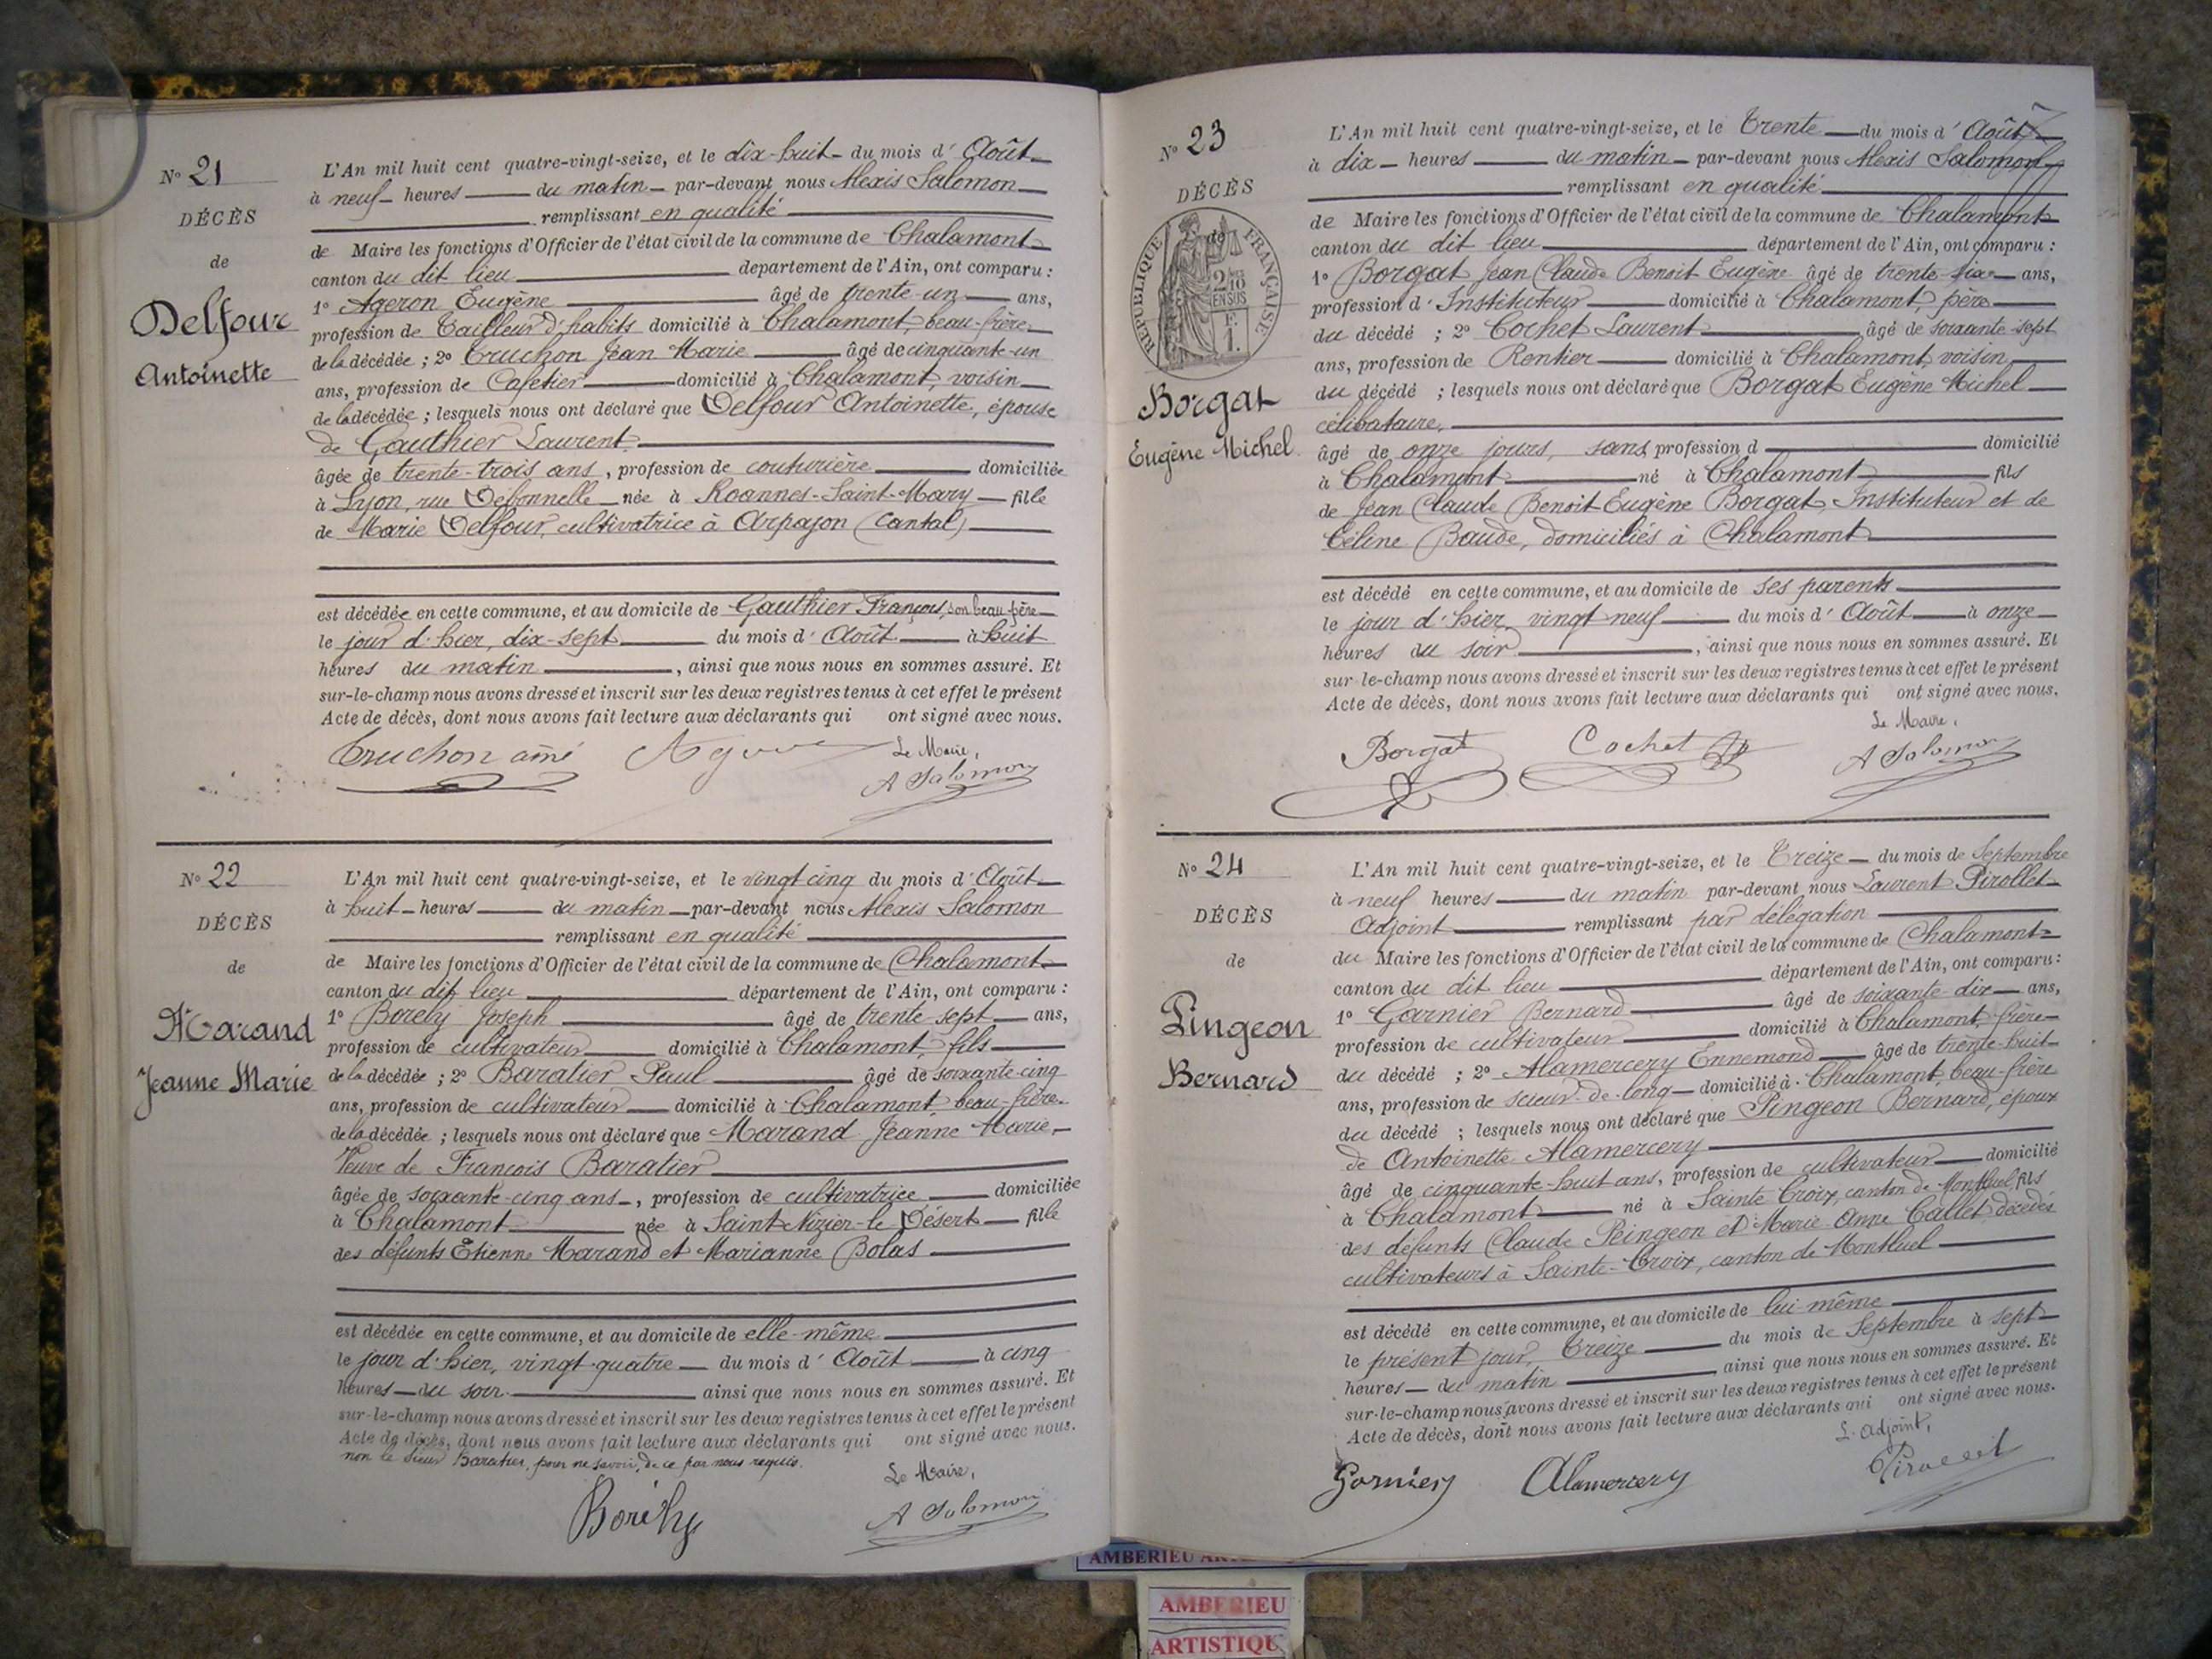 N° 21
DÉCÈS
de
Delfour
Antoinette
L'An mil huit cent quatre-vingt-seize, et le dix-huit du mois d' Août
à neuf heures du matin par-devant nous Alexis Salomon
remplissant en qualité
de Maire les fonctions d'Officier de l'état civil de la commune de Chalamont
canton du dit lieu département de l'Ain, ont comparu :
1° Ageron Eugène âgé de trente-un ans,
profession de Tailleur d'habits domicilié à Chalamont, beau-frère
de la décédée ; 2° Truchon Jean Marie âgé de cinquante-un
ans, profession de Cafetier domicilié à Chalamont, voisin
de la décédée ; lesquels nous ont déclaré que Delfour Antoinette, épouse
de Gauthier Laurent
âgée de trente-trois ans, profession de couturière domiciliée
à Lyon, rue née à Roannes-Saint-Mary fille
de Marie Delfour, cultivatrice à Arpajon (Cantal)
est décédée en cette commune, et au domicile de Gauthier François, son beau-père
le jour d'hier, dix-sept du mois d' Août à huit
heures du matin , ainsi que nous nous en sommes assuré. Et
sur-le-champ nous avons dressé et inscrit sur les deux registres tenus à cet effet le présent
Acte de décès, dont nous avons fait lecture aux déclarants qui ont signé avec nous.
Truchon ainé Le Maire,
A Salomon
N° 22
DÉCÈS
de
Marand
Jeanne Marie
L'An mil huit cent quatre-vingt-seize, et le vingt cinq du mois d' Août
à huit heures du matin par-devant nous Alexis Salomon
remplissant en qualité
de Maire les fonctions d'Officier de l'état civil de la commune de Chalamont
canton du dit lieu département de l'Ain, ont comparu :
1° Borély Joseph âgé de trente-sept ans,
profession de cultivateur domicilié à Chalamont, fils
de la décédée ; 2° Baratier Paul âgé de soixante-cinq
ans, profession de cultivateur domicilié à Chalamont, beau-frère
de la décédée ; lesquels nous ont déclaré que Marand Jeanne Marie,
Veuve de François Baratier
âgée de soixante-cinq ans , profession de cultivatrice domiciliée
à Chalamont née à Saint-Nizier-le-Désert fille
des défunts Etienne Marand et Marianne Bolas
est décédée en cette commune, et au domicile de elle-même
le jour d'hier, vingt-quatre du mois d' Août à cinq
heures du soir ainsi que nous nous en sommes assuré. Et
sur-le-champ nous avons dressé et inscrit sur les deux registres tenus à cet effet le présent
Acte de décès, dont nous avons fait lecture aux déclarants qui ont signé avec nous.
non le sieur Baratier, pour ne savoir, de ce par nous requis.
Le Maire,
Borély A Salomon
N° 23
DÉCÈS
de
RÉPUBLIQUE FRANÇAISE
2/10 EN SUS
F. 1.
Borgat
Eugène Michel
L'An mil huit cent quatre-vingt-seize, et le Trente du mois d' Août
à dix heures du matin par-devant nous Alexis Salomon
remplissant en qualité
de Maire les fonctions d'Officier de l'état civil de la commune de Chalamont
canton du dit lieu département de l'Ain, ont comparu :
1° Borgat Jean Claude Benoit Eugène âgé de trente-six ans,
profession d' Instituteur domicilié à Chalamont, père
du décédé ; 2° Cochet Laurent âgé de soixante-sept
ans, profession de Rentier domicilié à Chalamont, voisin
du décédé ; lesquels nous ont déclaré que Borgat Eugène Michel
célibataire,
âgé de onze jours, sans profession d domicilié
à Chalamont né à Chalamont fils
de Jean Claude Benoit Eugène Borgat, Instituteur et de
Céline Baude, domiciliés à Chalamont
est décédé en cette commune, et au domicile de ses parents
le jour d'hier vingt neuf du mois d' Août à onze
heures du soir , ainsi que nous nous en sommes assuré. Et
sur-le-champ nous avons dressé et inscrit sur les deux registres tenus à cet effet le présent
Acte de décès, dont nous avons fait lecture aux déclarants qui ont signé avec nous.
Le Maire,
Borgat Cochet A Salomon
N° 24
DÉCÈS
de
Pingeon
Bernard
L'An mil huit cent quatre-vingt-seize, et le Treize du mois de Septembre
à neuf heures du matin par-devant nous Laurent Pirollet
Adjoint remplissant par délégation
du Maire les fonctions d'Officier de l'état civil de la commune de Chalamont
canton du dit lieu département de l'Ain, ont comparu :
1° Garnier Bernard âgé de soixante-dix ans,
profession de cultivateur domicilié à Chalamont, frère
du décédé ; 2° Alamercery Ennemond âgé de trente-huit
ans, profession de scieur-de-long domicilié à Chalamont, beau-frère
du décédé ; lesquels nous ont déclaré que Pingeon Bernard, époux
de Antoinette Alamercery
âgé de cinquante-huit ans, profession de cultivateur domicilié
à Chalamont né à Sainte-Croix, canton de Montluel, fils
des défunts Claude Peingeon et Marie-Anne Callet, décédés
cultivateurs à Sainte-Croix, canton de Montluel
est décédé en cette commune, et au domicile de lui-même
le présent jour, Treize du mois de Septembre à sept
heures du matin ainsi que nous nous en sommes assuré. Et
sur-le-champ nous avons dressé et inscrit sur les deux registres tenus à cet effet le présent
Acte de décès, dont nous avons fait lecture aux déclarants qui ont signé avec nous.
L'adjoint,
Garnier Alamercery Pirollet
AMBERIEU
AMBERIEU
ARTISTIQU